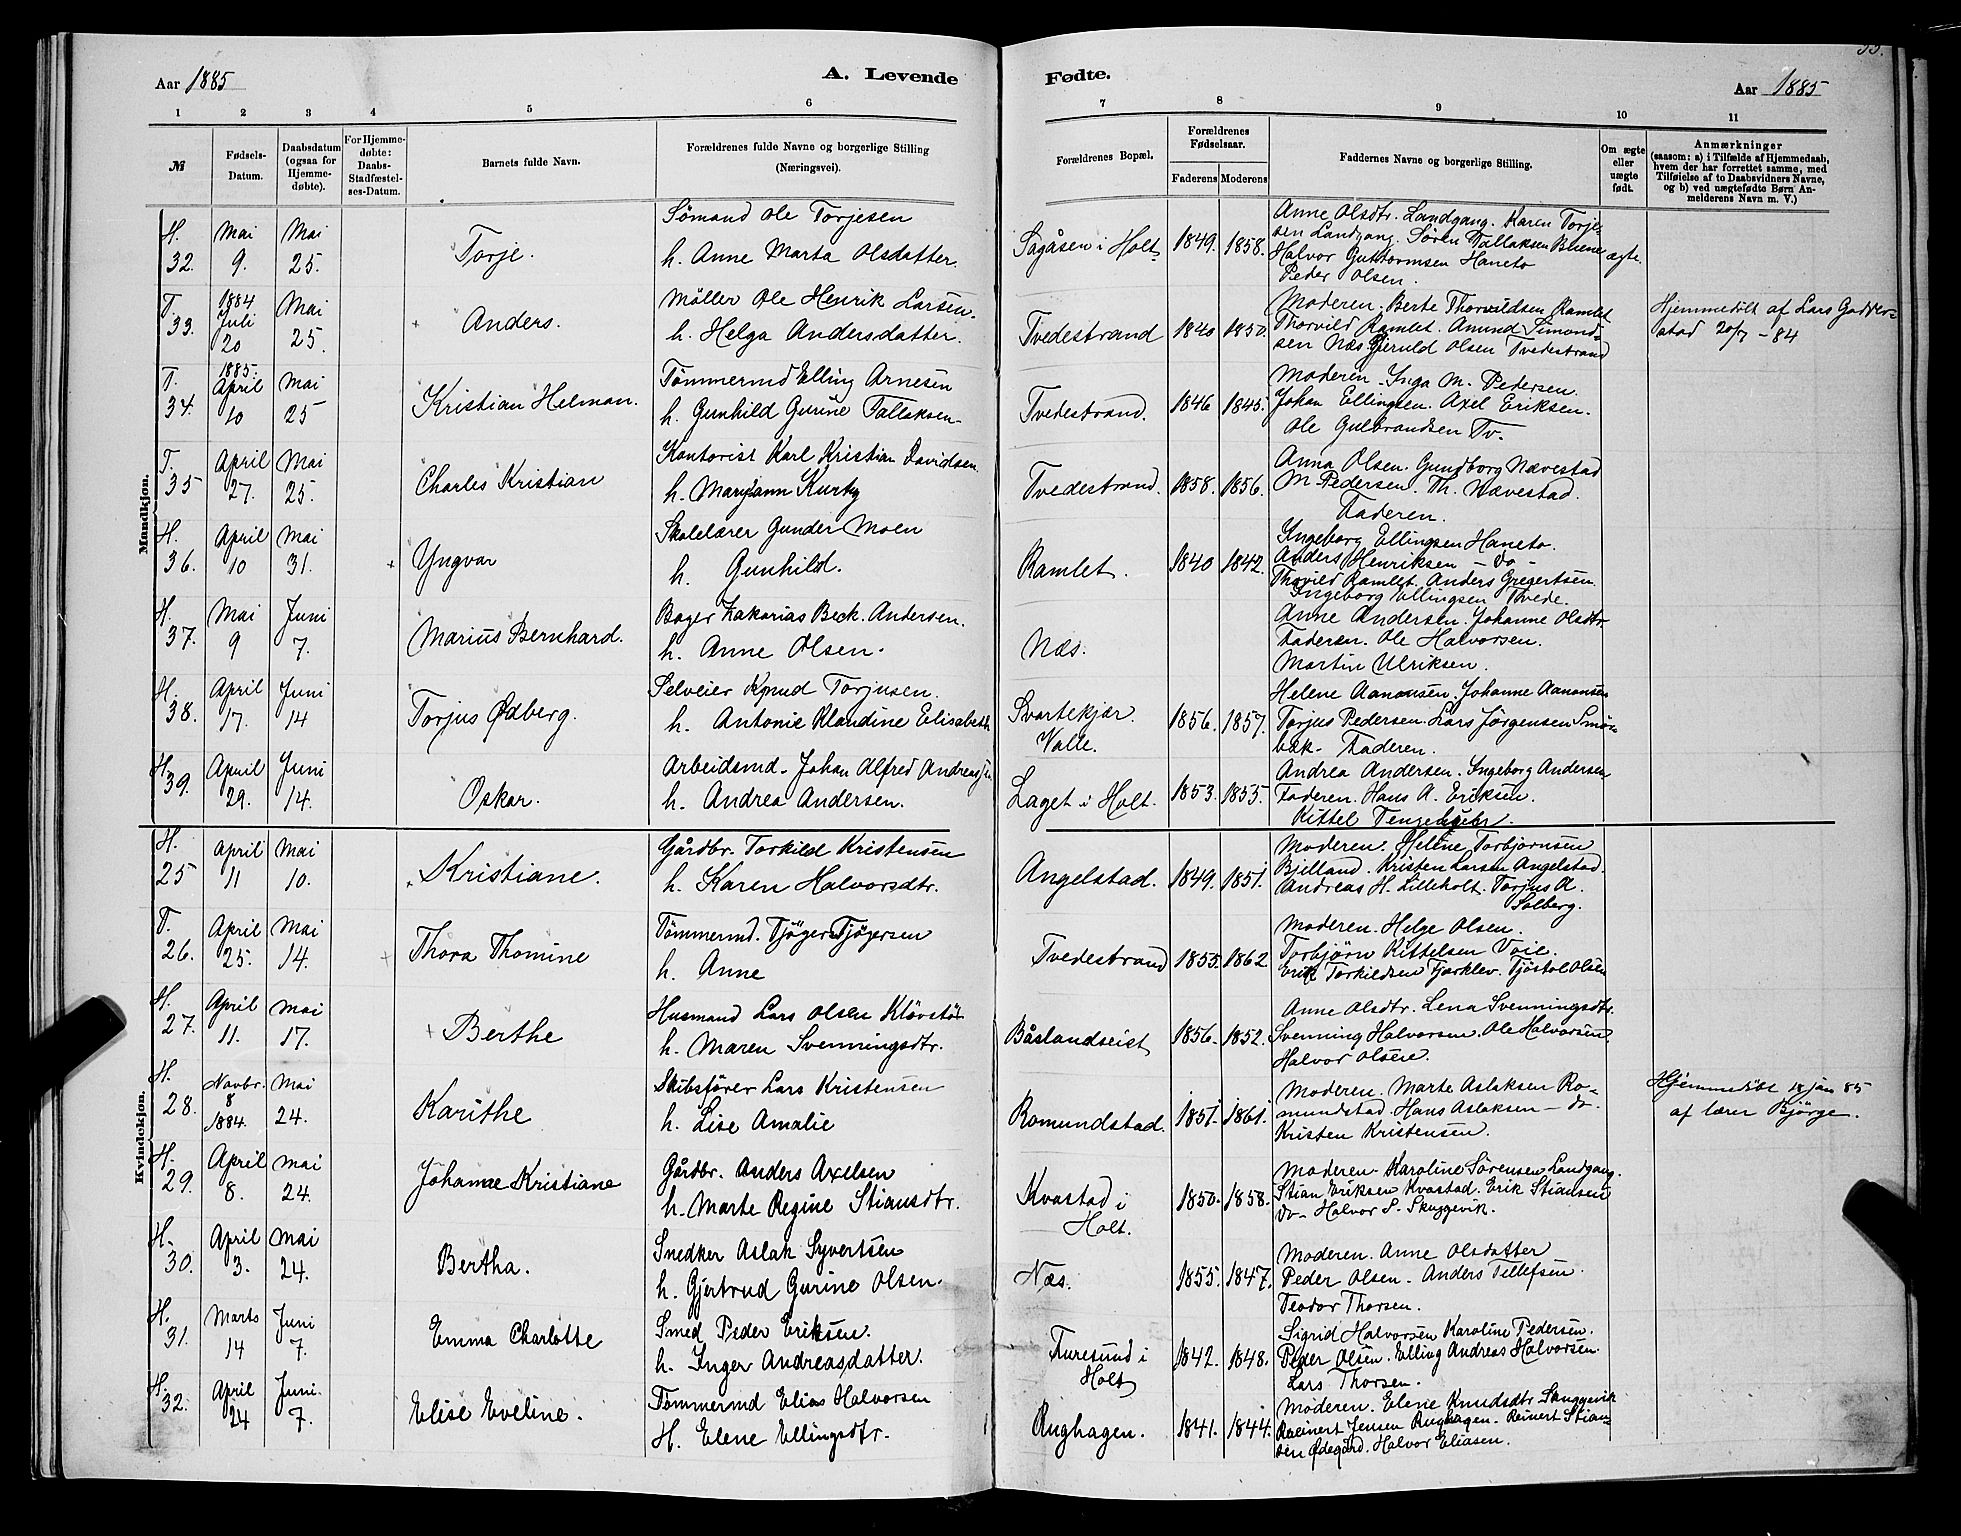 Aar 1885
A. Levende
Fødte.
Aar 1885
1 2 3 4 5 6 7 8 9 10 11
№
Fødsels-Datum.
Daabsdatum (ogsaa for Hjemme-døbte).
For Hjemme-døbte: Daabs-Stadfæstel-ses-Datum.
Barnets fulde Navn.
Forældrenes fulde Navne og borgerlige Stilling (Næringsvei).
Forældrenes Bopæl.
Forældrenes Fødselsaar.
Faderens
Moderens
Faddernes Navne og borgerlige Stilling.
Om ægte eller uægte født.
Anmærkninger (saasom: a) i Tilfælde af Hjemmedaab, hvem der har forrettet samme, med Tilføielse af to Daabsvidners Navne, og b) ved uægtefødte Børn An-melderens Navn m. V.)
Mandkjøn.
H. 32. Mai 9. Mai 25. Torje. Sømand Ole Torjesen
h. Anne Marta Olsdatter. Sagåsen i Holt 1849. 1858. Anne Olsdtr. Landgang. Karen Torje-
sen Landgang. Søren Tallaksen Buene ægte.
Halvor Guttormsen Haneto
Peder Olsen.
T. 33. 1884 Juli 20 Mai 25. Anders. Møller Ole Henrik Larsen.
h. Helga Andersdatter. Tvedestrand 1840 1850. Moderen. Berte Thorvildsen Ramlet
Thorvild Ramlet. Amund Simond-
sen Næs. Gjeruld Olsen Tvedestrand
Hjemmedøbt af Lars Godder-
stad 20/7 - 84
T. 34. 1885. April 10 Mai 25 Kristian Helman. Tømmermd Elling Arnesen
h. Gunhild Gurine Tallaksen Tvedestrand. 1846 1845. Moderen. Inga M. Pedersen.
Johan Ellingsen. Axel Eriksen.
Ole Gulbrandsen Tv.
T. 35 April 27. Mai 25. Charles Kristian Kontorist Karl Kristian Davidsen
h. Maryann Kurby Tvedestrand. 1858. 1856. Anna Olsen. Gundborg Nævestad
M Pedersen. Th. Nævestad.
Faderen.
H. 36. April 10 Mai 31. Yngvar Skolelærer Gunder Moen
h. Gunhild. Ramlet. 1840 1842. Ingeborg Ellingsen Haneto.
Anders Henriksen - do -
Thorvild Ramlet. Anders Gregertsen.
Ingeborg Ellingsen Tvede.
H. 37. Mai 9 Juni 7. Marius Bernhard. Bager Zakarias Beck. Andersen.
h. Anne Olsen. Næs. Anne Andersen. Johanne Olsdtr
Faderen. Ole Halvorsen.
Martin Ulriksen.
H. 38. April 17. Juni 14 Torjus Ødberg. Selveier Knud Torjusen.
h. Antonie Klaudine Elisabeth Svartekjær. Valle. 1856. 1857. Helene Aanonsen. Johanne Aanonsen
Torjus Pedersen. Lars Jørgensen Smør-
bæk. Faderen.
H. 39. April 29. Juni 14. Oskar. Arbeidsmd. Johan Alfred Andreasjn
h. Andrea Andersen. Laget i Holt. 1853. 1855. Andrea Andersen. Ingeborg Andersen
Faderen. Hans A. Eriksen.
Kittel
Kvindekjøn.
H. 25 April 11 Mai 10. Kristiane. Gårdbr. Torkild Kristensen
h. Karen Halvorsdtr. Angelstad. 1849. 1851. Moderen. Helene Torbjørnsen
Bjelland. Kristen Larsen Angelstad.
Andreas H. Lilleholt. Torjus A.
Solberg.
T. 26. April 25. Mai 14. Thora Thomine Tømmermd. Tjøger Tjøgersen
h. Anne Tvedestrand 1855. 1862 Moderen. Helge Olsen.
Torbjørn Kittelsen Voie.
Erik Torkildsen Fjærklev. Tjøstol Olsen
H. 27. April 11. Mai 17. Berthe Husmand Lars Olsen Kløvstøl
h. Maren Svenningsdtr. Båslandseiet 1856. 1852. Anne Olsdtr. Lena Svenningsdtr.
Svenning Halvorsen. Ole Halvorsen
Halvor Olsen.
H. 28. Novbr. 8 1884. Mai 24. Karithe Skibsfører Lars Kristensen
h. Lise Amalie Romundstad. 1851. 1861. Moderen. Marte Aslaksen Ro-
mundstad. Hans Aslaksen - do.
Kristen Kristensen.
Hjemmedøbt 18 jan 85
af lærer Bjørge.
H. 29. April 8. Mai 24. Johanne Kristiane Gårdbr. Anders Axelsen
h. Marte Regine Stiansdtr. Kvastad i Holt. 1850. 1858. Moderen. Karoline Sørensen Landgang.
Stian Eriksen Kvastad. Erik Stiansen
do. Halvor S. Skuggevik.
H. 30. April 3. Mai 24. Bertha. Snedker Aslak Syvertsen
h. Gjertrud Gurine Olsen. Næs. 1855. 1847. Moderen. Anne Olsdatter
Peder Olsen. Anders Tellefsen.
Teodor Thorsen.
H. 31. Marts 14 Juni 7. Emma Charlotte Smed Peder Eriksen.
h. Inger Andreasdatter. Furesund i Holt 1842. 1848. Sigrid Halvorsen Karoline Pedersen.
Peder Olsen. Elling Andreas Halvorsen.
Lars Thorsen.
H. 32. April 24 Juni 7. Elise Eveline. Tømmermd Elias Halvorsen
H. Elene Ellingsdtr. Rughagen. 1841. 1844. Moderen. Elene Knudsdtr Skuggevik
Reinert Jensen Rughagen. Reinert Stian-
sen Ødegård. Halvor Eliasen.